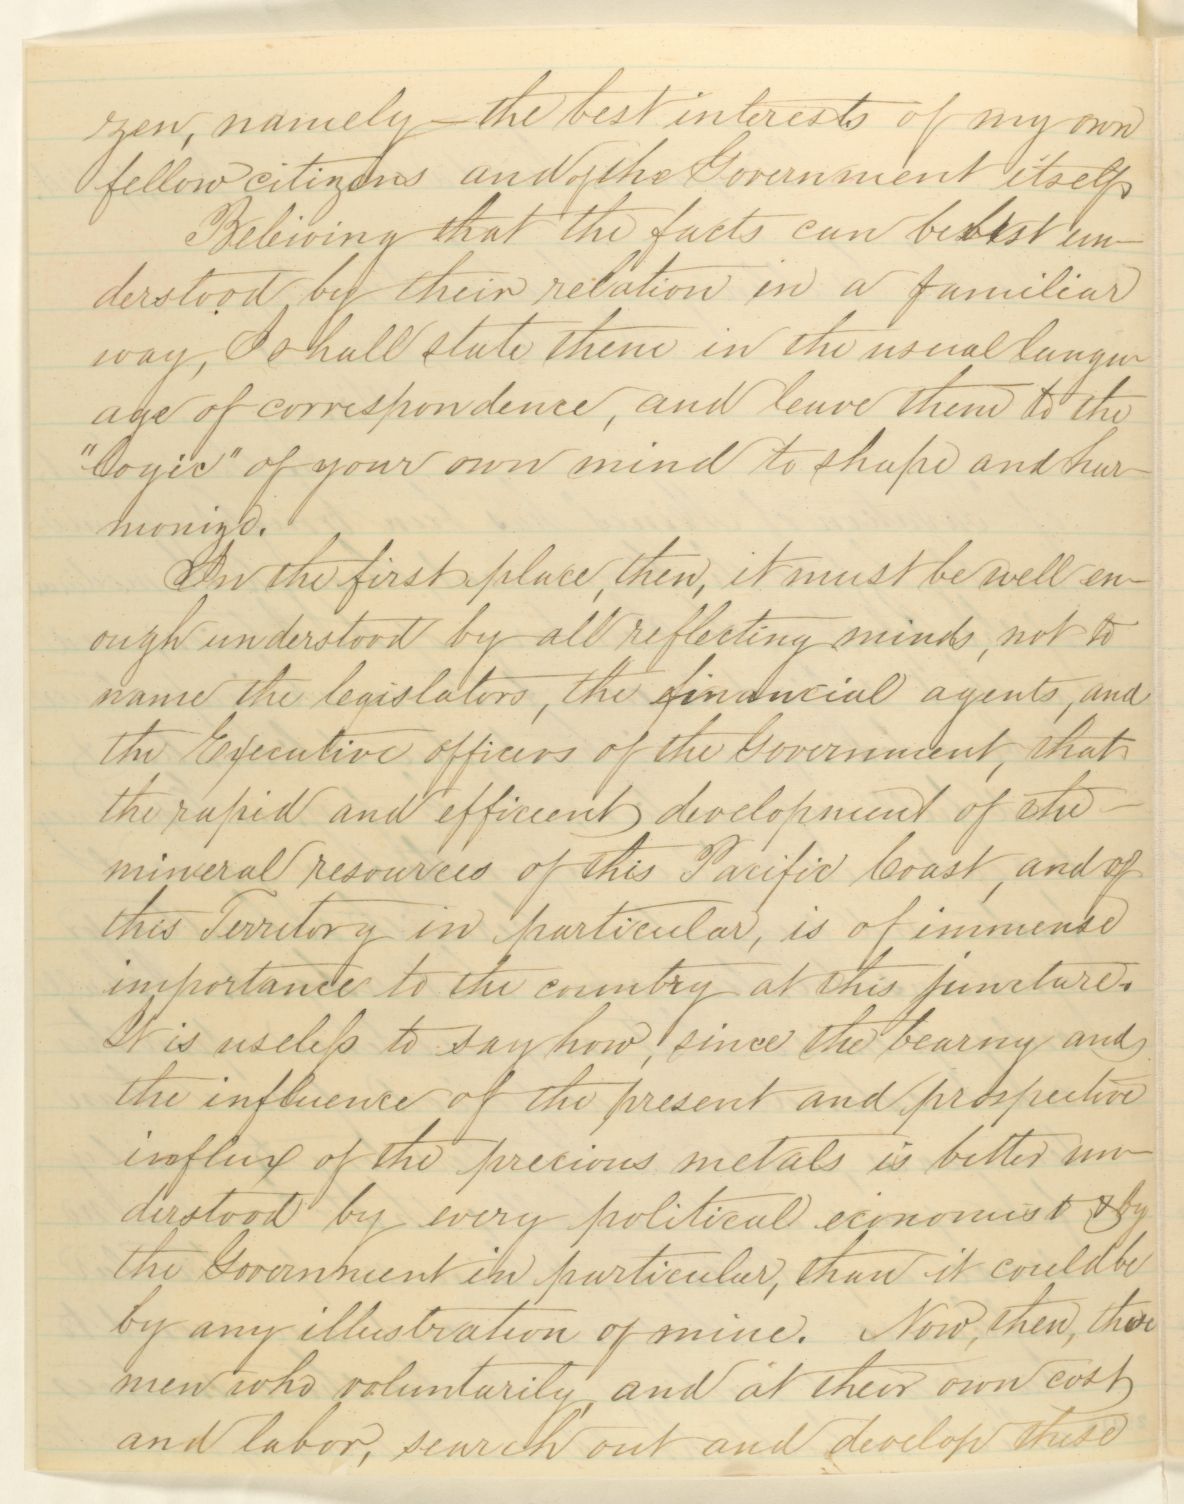 zen, namely — the best interests of my own
fellow citizens and of the Government itself.
Beleiving that the facts can be best un-
derstood by their relation in a familiar
way, I shall state them in the usual langu-
age of correspondence, and leave them to the
"logic" of your own mind to shape and har-
monize.
In the first place, then, it must be well en-
ough understood by all reflecting minds, not to
name the legislators, the financial agents, and
the Executive officers of the Government, that
the rapid and efficient development of the —
mineral resources of this Pacific Coast, and of
this Territory in particular, is of immense
importance to the country at this juncture.
It is useless to say how, since the bearing and
the influence of the present and prospective
influx of the precious metals is better un-
derstood by every political economist & by
the Government in particular, than it could be
by any illustration of mine. Now, then, these
men who voluntarily, and at their own cost
and labor, search out and develop these